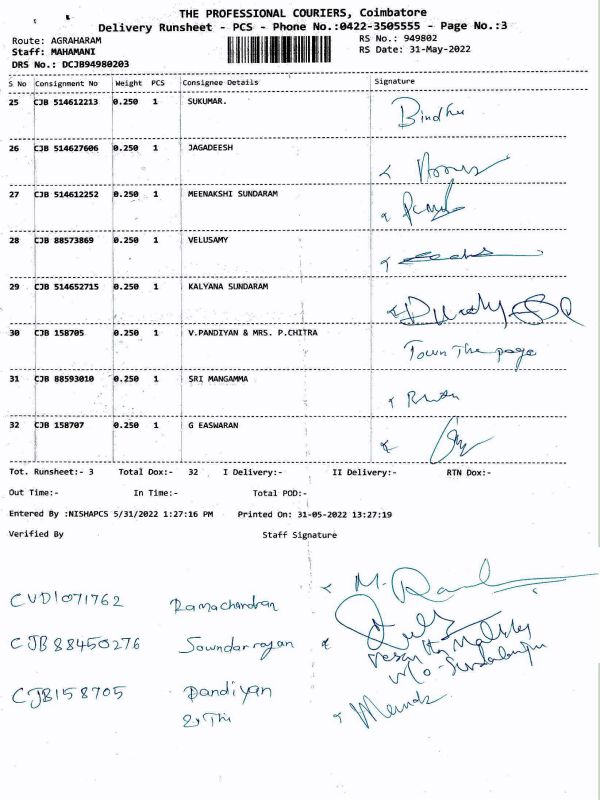 THE PROFESSIONAL COURIERS, Coimbatore
Delivery Runsheet - PCS - Phone No.:0422-3505555 - Page No.:3
Route: AGRAHARAM RS No.: 949802
Staff: MAHAMANI RS Date: 31-May-2022
DRS No.: DCJB94980203
S No Consignment No Weight PCS Consignee Details Signature
25 CJB 514612213 0.250 1 SUKUMAR. Bindhu
26 CJB 514627606 0.250 1 JAGADEESH
27 CJB 514612252 0.250 1 MEENAKSHI SUNDARAM
28 CJB 88573869 0.250 1 VELUSAMY
29 CJB 514652715 0.250 1 KALYANA SUNDARAM
30 CJB 158705 0.250 1 V.PANDIYAN & MRS. P.CHITRA Town The page
31 CJB 88593010 0.250 1 SRI MANGAMMA
32 CJB 158707 0.250 1 G EASWARAN
Tot. Runsheet:- 3 Total Dox:- 32 I Delivery:- II Delivery:- RTN Dox:-
Out Time:- In Time:- Total POD:-
Entered By :NISHAPCS 5/31/2022 1:27:16 PM Printed On: 31-05-2022 13:27:19
Verified By Staff Signature
CVD1071762 Ramachandran
CJB 88450276 Soundarrajan
CJB158705 Pandiyan